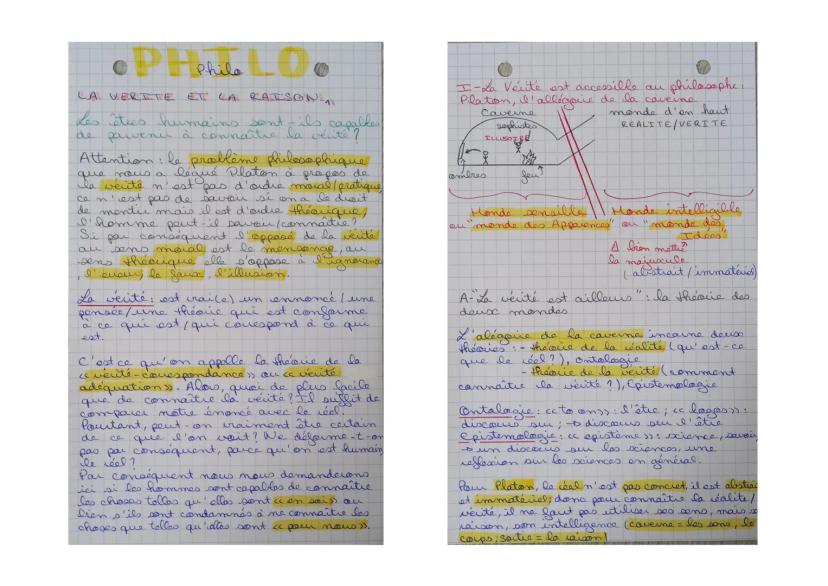 PHILO
Philo
LA VERITE ET LA RAISON
Les êtres humains sont-ils capables
de parvenir à connaître la vérité ?
Attention : le problème philosophique
que nous a légué Platon à propos de
la vérité n'est pas d'ordre moral/pratique,
ce n'est pas de savoir si on a le droit
de mentir mais il est d'ordre théorique,
l'homme peut-il savoir/connaître?
Si par conséquent l'opposé de la vérité
au sens moral est le mensonge, au
sens théorique elle s'oppose à l'ignorance
, l'erreur, le faux, l'illusion.
La vérité : est vrai(e) un ennoncé/une
pensée/une théorie qui est conforme
à ce qui est/qui correspond à ce que
est.
C'est ce qu'on appelle la théorie de la
« vérité-correspondance » ou « vérité
adéquation ». Alors, quoi de plus facile
que de connaître la vérité ? Il suffit de
comparer notre énoncé avec le réel.
Pourtant, peut-on vraiment être certain
de ce que l'on voit? Ne déforme-t-on
pas par conséquent, parce qu'on est humain
le réel ?
Par conséquent nous nous demanderons
ici si les hommes sont capables de connaître
les choses telles qu'elles sont « en soi » ou
bien s'ils sont condamnés à ne connaître les
choses que telles qu'elles sont « pour nous ».
I-La Vérité est accessible au philosophe :
Platon, l'allégorie de la caverne
Caverne
monde d'en haut
REALITE/VERITE
sophistes
ILLUSOIRE
ombres
feu
Monde sensible
ou "monde des Apparences"
Monde intelligible
ou "monde des
Idées"
Δ bien mettre
la majuscule
(abstrait/immatériel)
A-"La vérité est ailleurs" : la théorie des
deux mondes
L'alégorie de la caverne incarne deux
théories : - théorie de la réalité (qu'est-ce
que le réel ?), ontologie
- théorie de la vérité (comment
connaître la vérité ?), Epistemologie
Ontologie : « to on » : l'être ; « logos » :
discours sur ; → discours sur l'être
Epistemologie : « epistème » : science, savoir,
→ un discours sur les sciences, une
réflexion sur les sciences en général.
Pour Platon, le réel n'est pas concret, il est abstrait
et immatériel; donc pour connaître la réalité/
vérité, il ne faut pas utiliser ses sens, mais sa
raison, son intelligence (caverne = les sens, le
corps ; sortie = la raison)